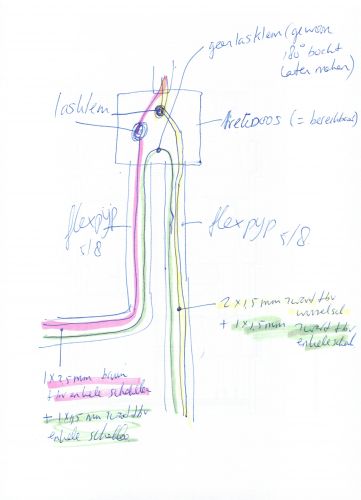 geen lasklem (gewoon
180° bocht
laten maken)
lasklem
trekdoos (= bereikbaar)
flexpijp
5/8
flexpijp 5/8
2 x 1,5 mm zwart tbv
wisselsch
+ 1 x 1,5 mm zwart tbv
enkele schak
1 x 2,5 mm bruin
tbv enkele schakelaar
+ 1 x 1,5 mm zwart tbv
enkele schakelaar